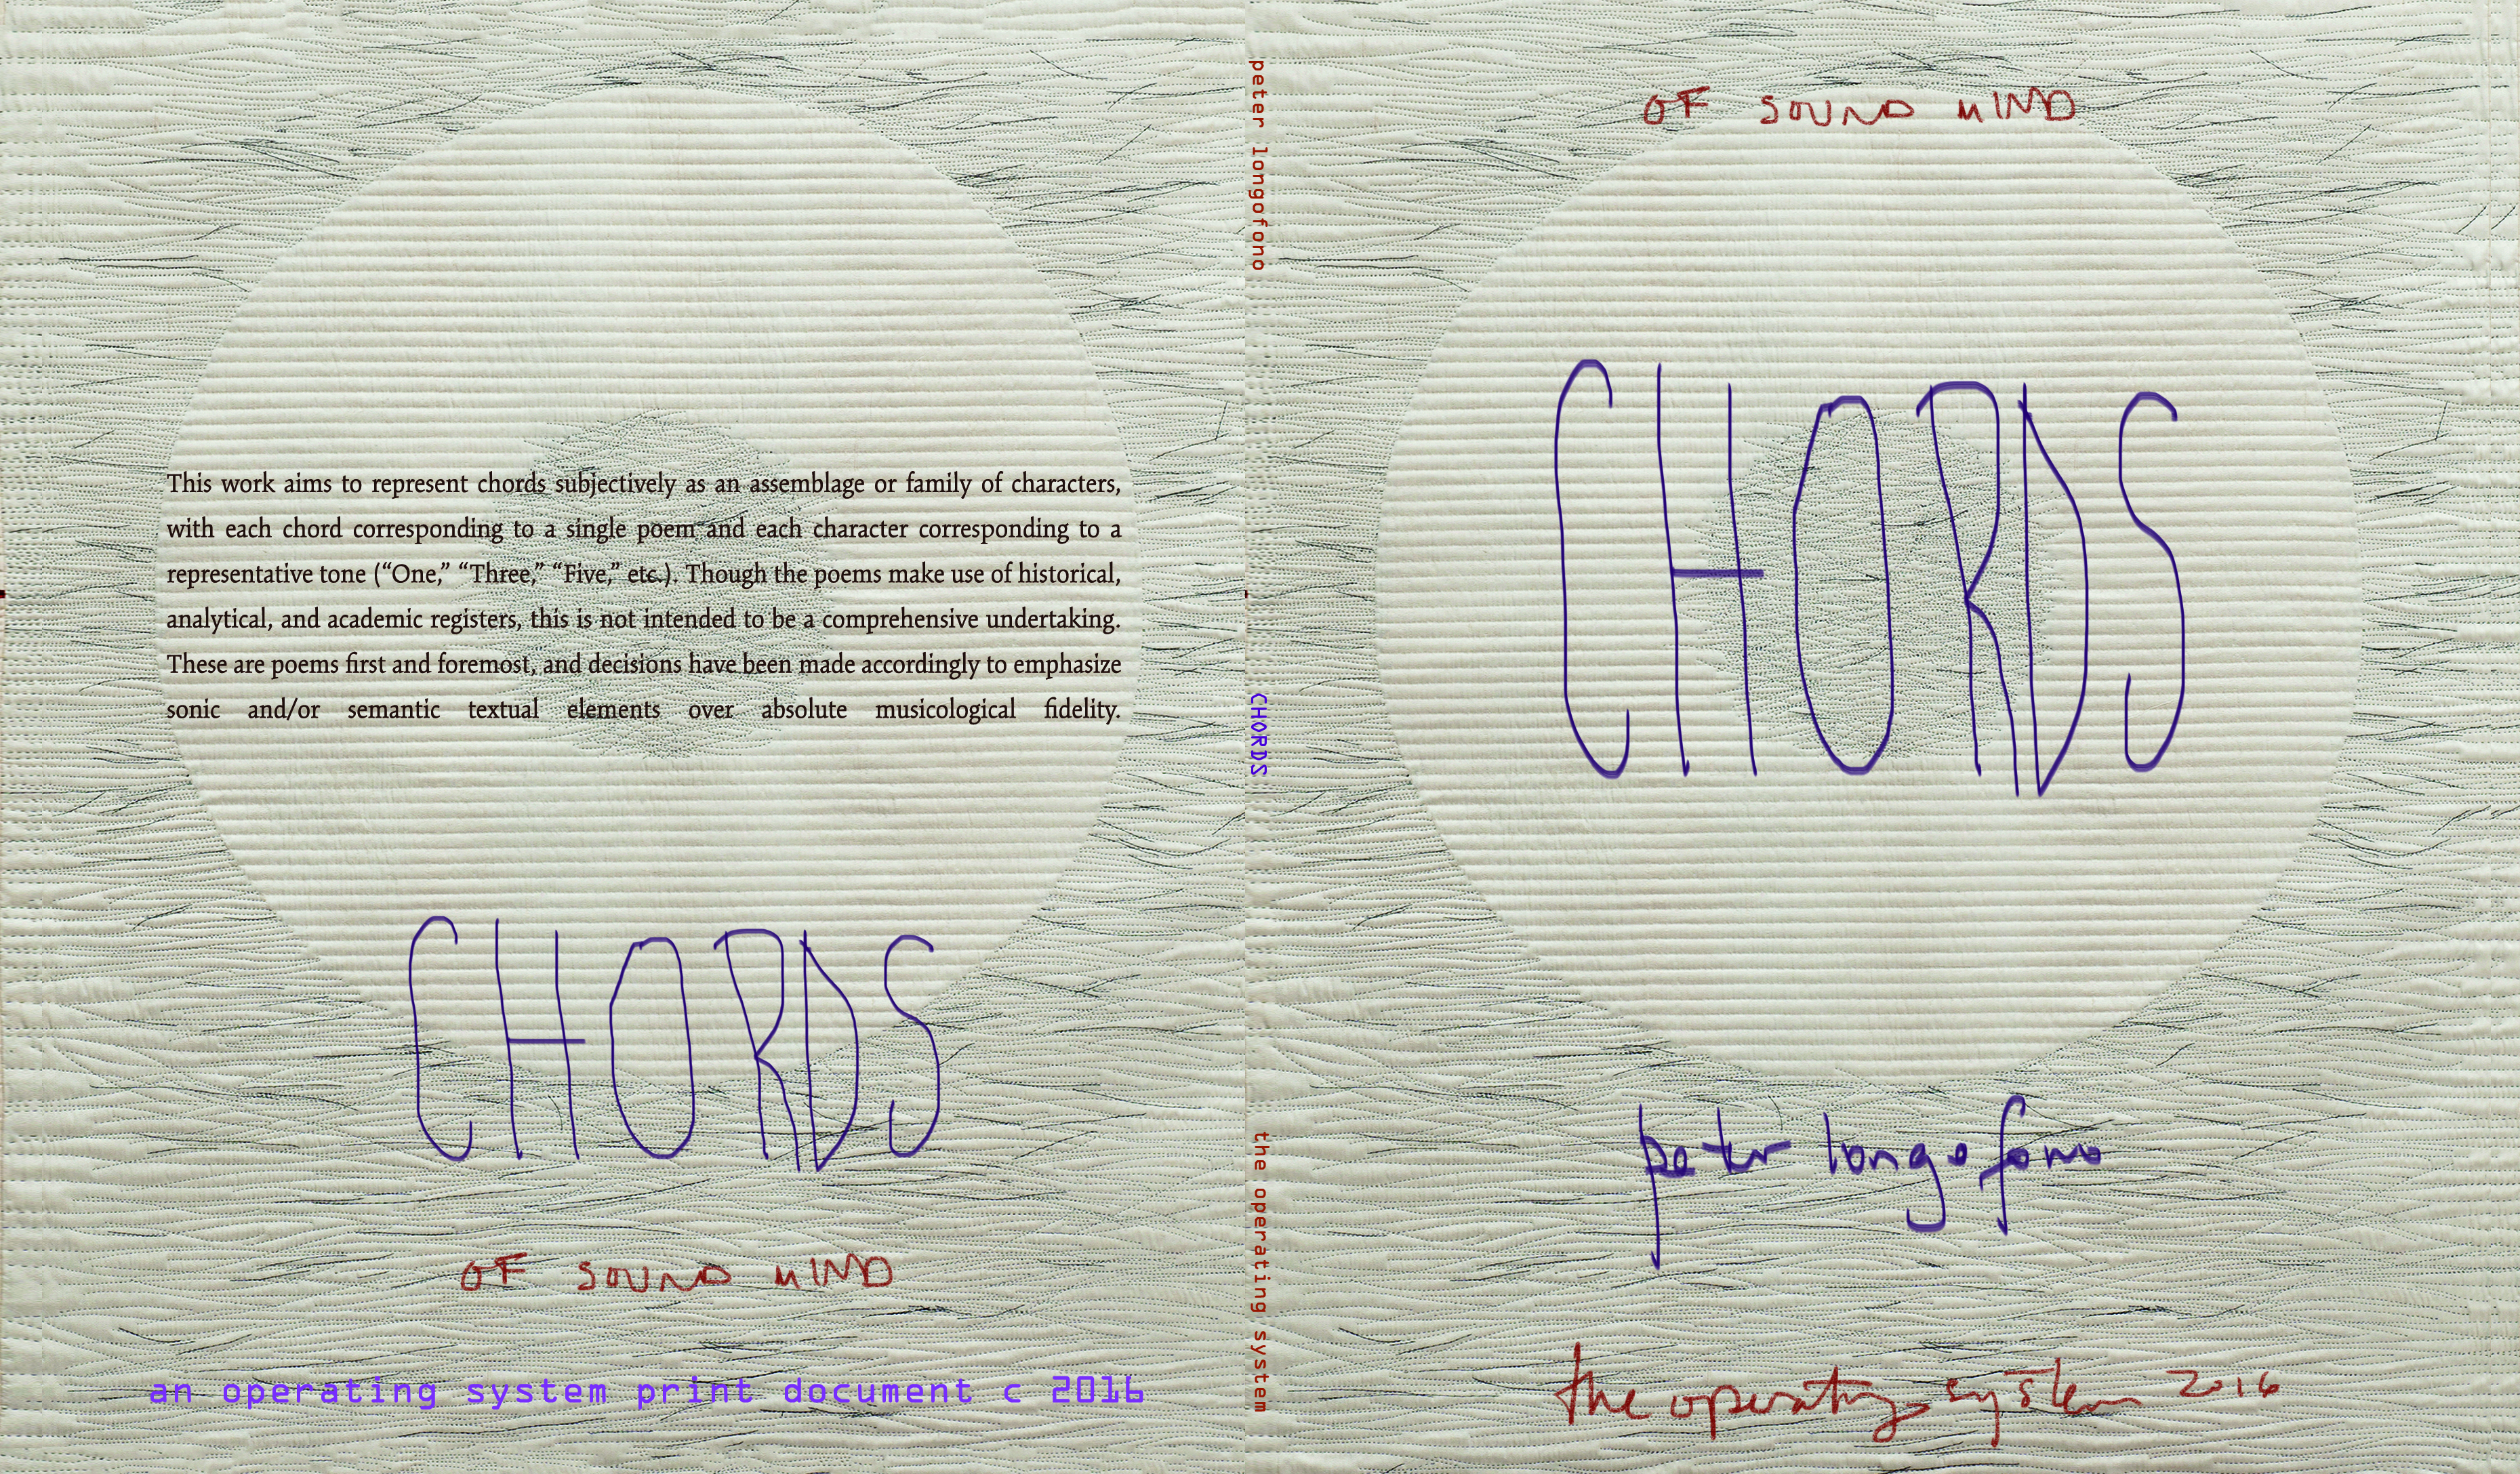 This work aims to represent chords subjectively as an assemblage or family of characters,
with each chord corresponding to a single poem and each character corresponding to a
representative tone (“One,” “Three,” “Five,” etc.). Though the poems make use of historical,
analytical, and academic registers, this is not intended to be a comprehensive undertaking.
These are poems first and foremost, and decisions have been made accordingly to emphasize
sonic and/or semantic textual elements over absolute musicological fidelity.
CHORDS
OF SOUND MIND
an operating system print document c 2016
peter longofono
CHORDS
the operating system
OF SOUND MIND
CHORDS
peter longofono
the operating system 2016